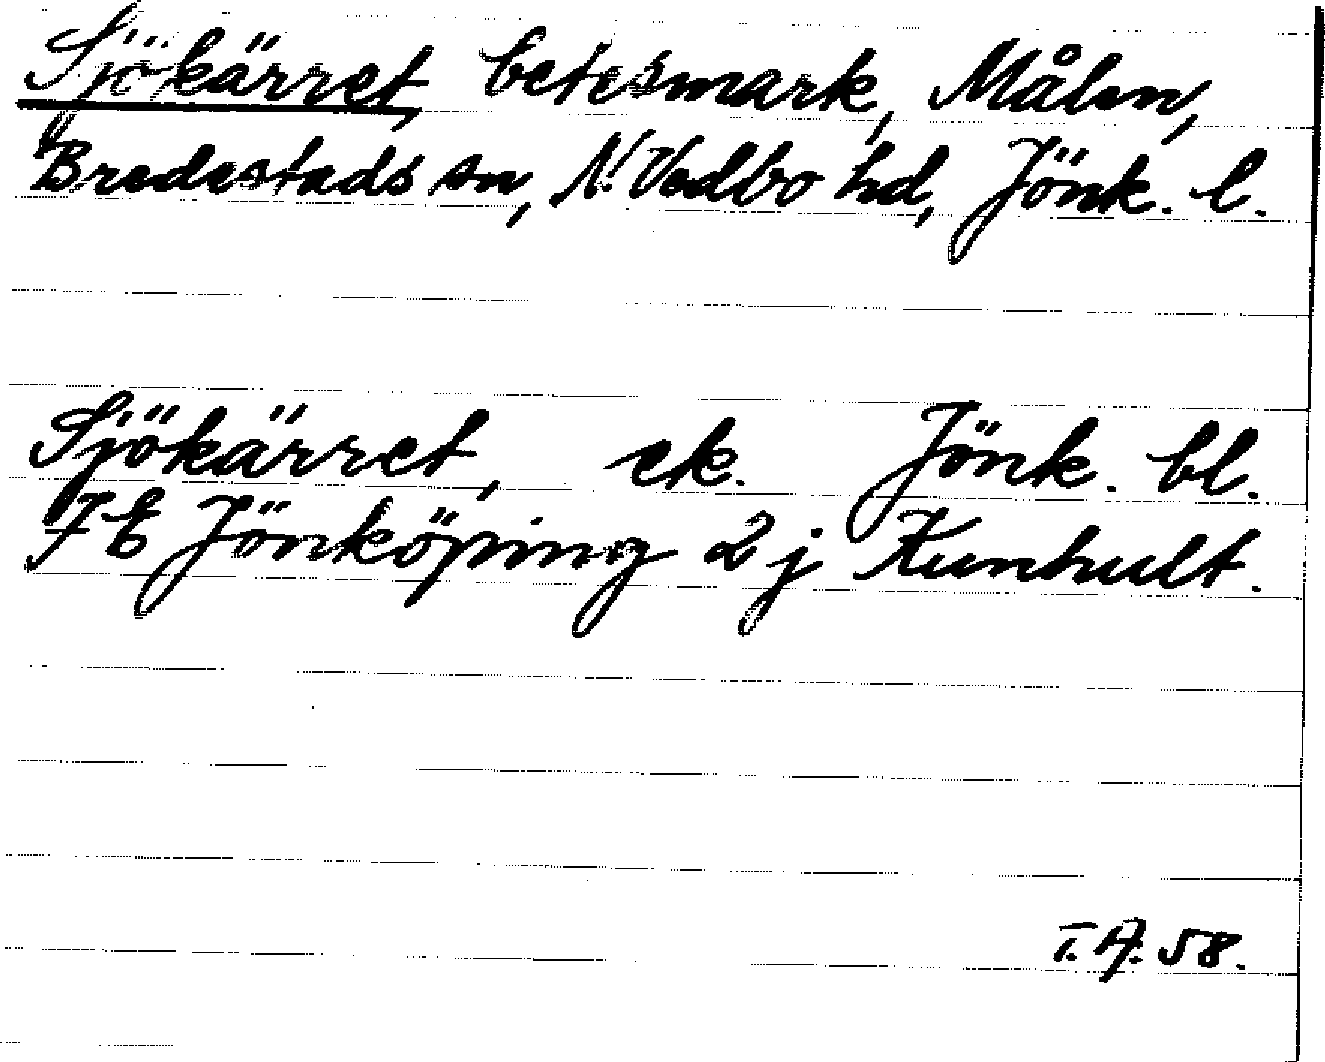 Sjökärret, betesmark, Målen,
Bredestads sn, N. Vedbo hd, Jönk. l.
Sjökärret, ek. Jönk. bl.
7 E Jönköping 2 j Kunhult.
T. A. 58.